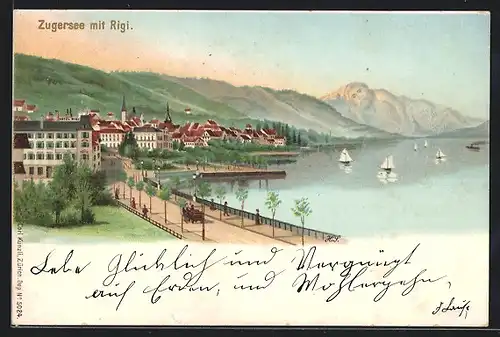 Zugersee mit Rigi.
Carl Künzli, Zürich. Dep. Nº 5024.
Lebe Glücklich und Vergnügt
auf Erden, und Wohlergehn.